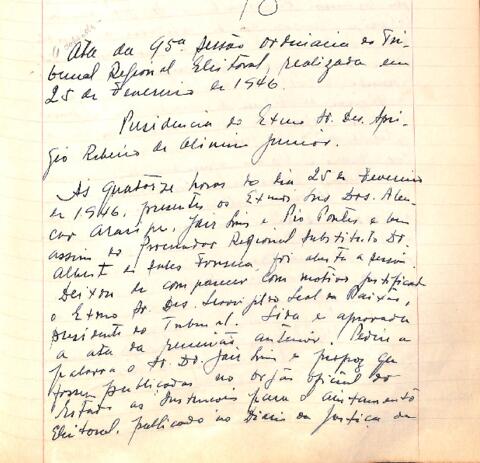 10
Ata da 95ª sessão ordinaria do Tri-
bunal Regional Eleitoral, realizada em
25 de Fevereiro de 1946.
Presidencia do Exmo Sr. Des. Apri-
gio Ribeiro de Oliveira Junior.
As quatorze horas do dia 25 de Fevereiro
de 1946, presentes os Exmos Snrs Drs. Alen-
car Araripe, Jair Lins e Pio Pontes e bem
assim o Procurador Regional Substituto Dr.
Alberto de Sales Fonseca, foi aberta a sessão.
Deixou de comparecer com motivo justificado
o Exmo Sr. Des. Leal da Paixão,
presidente do Tribunal. Lida e aprovada
a ata da reunião anterior. Pediu a
palavra o Sr. Dr. Jair Lins e propoz que
fossem publicadas no orgão oficial do
Estado as Instruções para o alistamento
Eleitoral, publicado no Diario da Justiça de